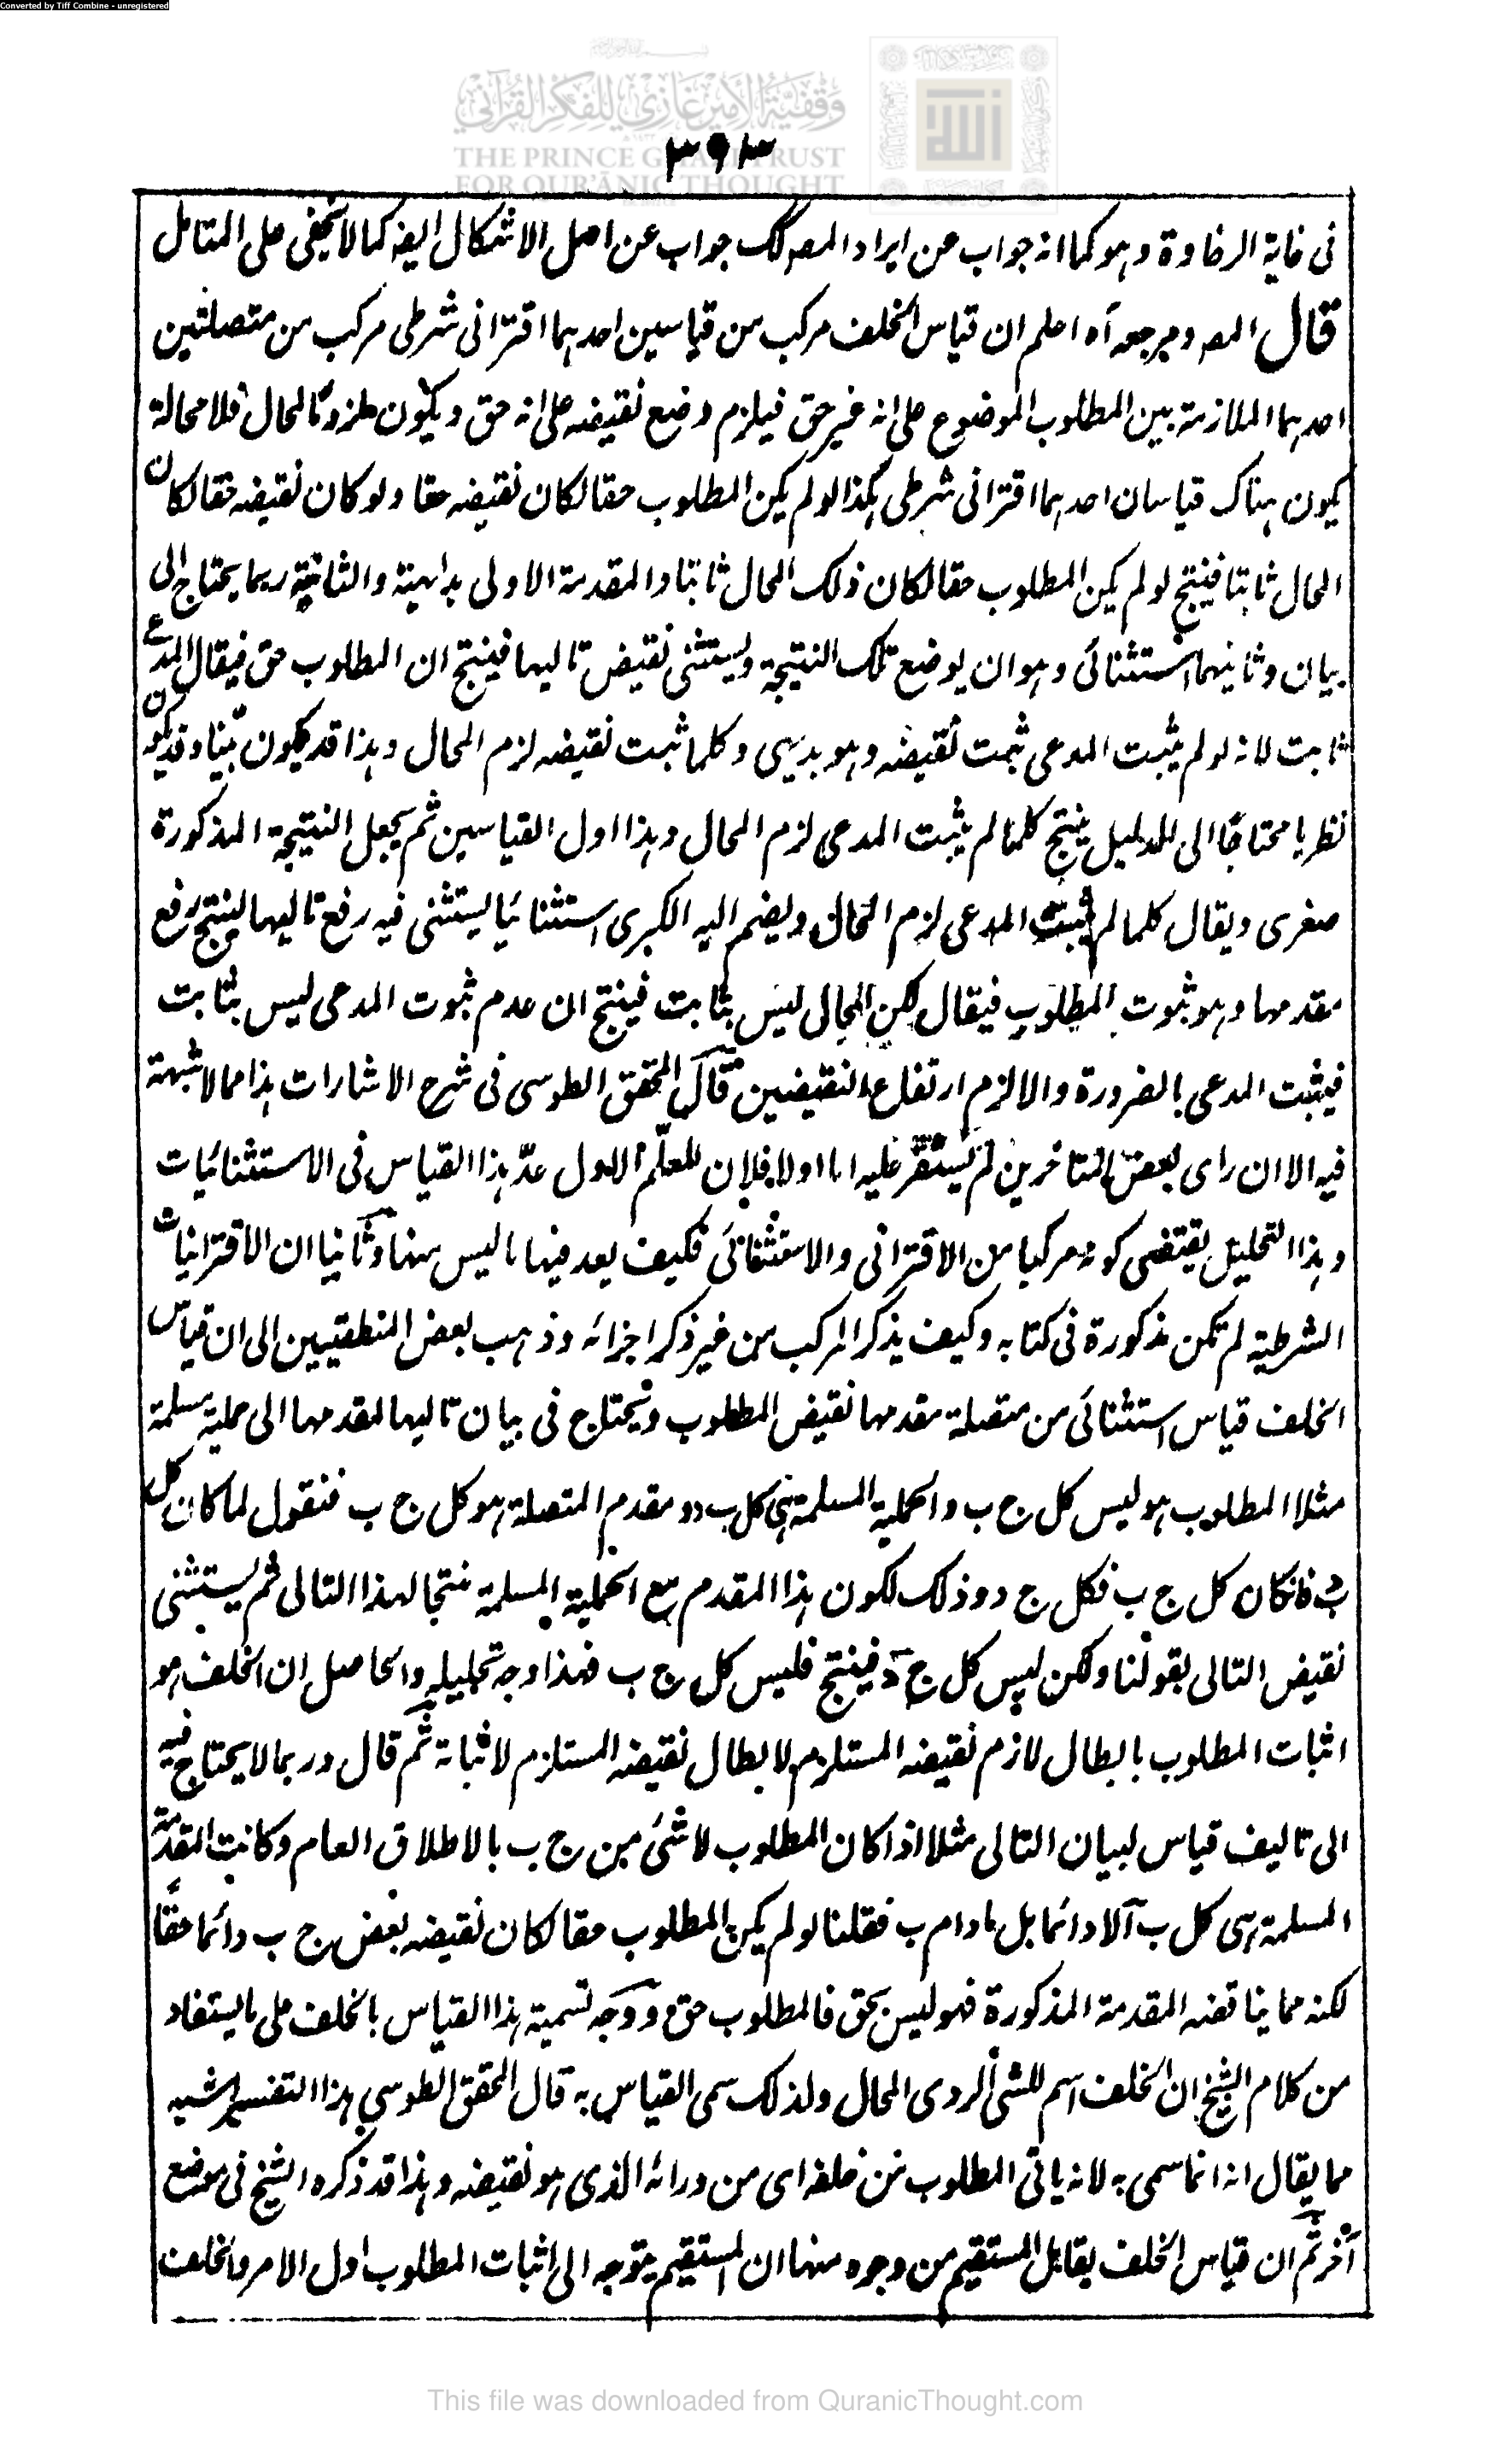 Converted by Tiff Combine - unregistered
وَقْفِيَّةُ الأَمِيرِ غَازِي لِلْفِكْرِ القُرْآنِي
THE PRINCE GHAZI TRUST
FOR QUR'ĀNIC THOUGHT
٣٩٣
فى غاية الرخاوة وهو كما انه جواب عن ايراد المصـ كك جواب عن اصل الاشكال ايضـ كما لا يخفى على المتامل
قال المصـ ومرجعه آه اعلم ان قياس الخلف مركب من قياسين احدهما اقترانى شرطى مركب من متصلتين
احدهما الملازمة بين المطلوب الموضوع على انه غير حق فيلزم وضع نقيضه على انه حق ويكون ملزوما لمحال فلا محالة
يكون هناك قياسان احدهما اقترانى شرطى هكذا لو لم يكن المطلوب حقا لكان نقيضه حقا ولو كان نقيضه حقا لكان
المحال ثابتا فينتج لو لم يكن المطلوب حقا لكان ذلك المحال ثابتا والمقدمة الاولى بداهية والثانية ربما يحتاج الى
بيان وثانيهما استثنائى وهو ان يوضع تلك النتيجة ويستثنى نقيض تاليها فينتج ان المطلوب حق فيقال المدعى
ثابت لانه لو لم يثبت المدعى ثبت نقيضه وهو بديهى وكلما ثبت نقيضه لزم المحال وهذا قد يكون بيّنا وقد يكون
نظريا محتاجًا الى الدليل ينتج كلما لم يثبت المدعى لزم المحال وهذا اول القياسين ثم يجعل النتيجة المذكورة
صغرى ويقال كلما لم يثبت المدعى لزم المحال ويضم اليه الكبرى استثنائيا يستثنى فيه رفع تاليها لينتج رفع
مقدمها وهو ثبوت المطلوب فيقال لكن المحال ليس بثابت فينتج ان عدم ثبوت المدعى ليس بثابت
فيثبت المدعى بالضرورة والا لزم ارتفاع النقيضين قال المحقق الطوسى فى شرح الاشارات هذا مما لا شبهة
فيه الا ان راى بعض المتاخرين لم يستقر عليه اما اولا فلان المعلّم الاول عدّ هذا القياس فى الاستثنائيات
وهذا التحليل يقتضى كونه مركبا من الاقترانى والاستثنائى فكيف يعد فيها ما ليس منها وثانيا ان الاقترانيات
الشرطية لم تكن مذكورة فى كتابه وكيف يذكر المركب من غير ذكر اجزائه وذهب بعض المنطقيين الى ان قياس
الخلف قياس استثنائى من متصلة مقدمها نقيض المطلوب ويحتاج فى بيان تاليها لمقدمها الى حملية مسلمة
مثلا المطلوب هو ليس كل ج ب والحملية المسلمة هى كل ب د و مقدم المتصلة هو كل ج ب فنقول لما كان كل
ب د فان كان كل ج ب فكل ج د وذلك لكون هذا المقدم مع الحملية المسلمة منتجا لهذا التالى ثم يستثنى
نقيض التالى بقولنا ولكن ليس كل ج د فينتج فليس كل ج ب فهذا وجه تحليله والحاصل ان الخلف هو
اثبات المطلوب بابطال لازم نقيضه المستلزم لابطال نقيضه المستلزم لاثباته ثم قال وربما لا يحتاج فيه
الى تاليف قياس لبيان التالى مثلا اذا كان المطلوب لا شئ من ج ب بالاطلاق العام وكانت المقدمة
المسلمة هى كل ب آ لا دائما بل ما دام ب فقلنا لو لم يكن المطلوب حقا لكان نقيضه بعض ج ب دائما حقًا
لكنه مما يناقضه المقدمة المذكورة فهو ليس بحق فالمطلوب حق ووجه تسمية هذا القياس بالخلف على ما يستفاد
من كلام الشيخ ان الخلف اسم للشئ الردى المحال ولذلك سمى القياس به قال المحقق الطوسى هذا التفسير اشبه
مما يقال انه انما سمى به لانه ياتى المطلوب من خلفه اى من ورائه الذى هو نقيضه وهذا قد ذكره الشيخ فى موضع
آخر ثم ان قياس الخلف يقابل المستقيم من وجوه منها ان المستقيم يتوجه الى اثبات المطلوب اول الامر والخلف
This file was downloaded from QuranicThought.com